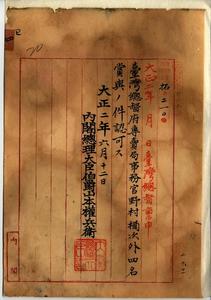 拓二一〇
大正二年 月 日臺灣總督稟申
臺灣總督府專賣局事務官野村楠次外四名
賞與ノ件認可ス
大正二年六月十二日
內閣總理大臣伯爵山本權兵衞
內閣